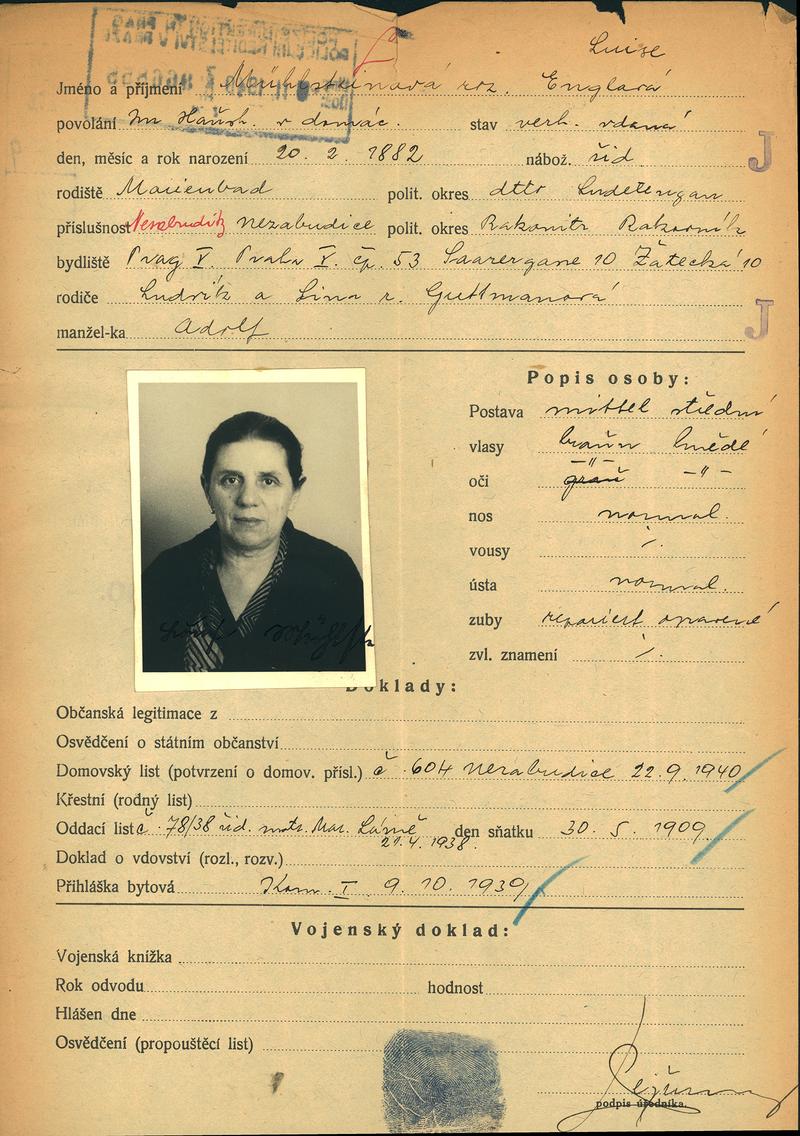 Luise
Jméno a příjmení Mühlsteinová roz. Englová
povolání Im Haush. v domác. stav verh. vdaná
den, měsíc a rok narození 20. 2. 1882 nábož. žid
J
rodiště Marienbad polit. okres dtto Sudetengau
příslušnost Nezabudic nezabudice polit. okres Rakonitz Rakovník
bydliště Prag V. Praha V. čp. 53 Saazergasse 10 Žatecká 10
rodiče Ludvík a Lina r. Guttmanová
J
manžel-ka Adolf
Popis osoby:
Postava mittel střední
vlasy braun hnědé
oči grau -"- -"-
nos normal.
vousy /.
ústa normal.
zuby repariert opravené
zvl. znamení /.
Doklady:
Občanská legitimace z
Osvědčení o státním občanství
Domovský list (potvrzení o domov. přísl.) č. 604 nezabudice 22. 9. 1940
Křestní (rodný list)
Oddací list č. 78/38 žid. matr. Mar. Lázně den sňatku 30. 5. 1909
21. 4. 1938.
Doklad o vdovství (rozl., rozv.)
Přihláška bytová Kom. I 9. 10. 1939
Vojenský doklad:
Vojenská knížka
Rok odvodu hodnost
Hlášen dne
Osvědčení (propouštěcí list)
podpis úředníka.